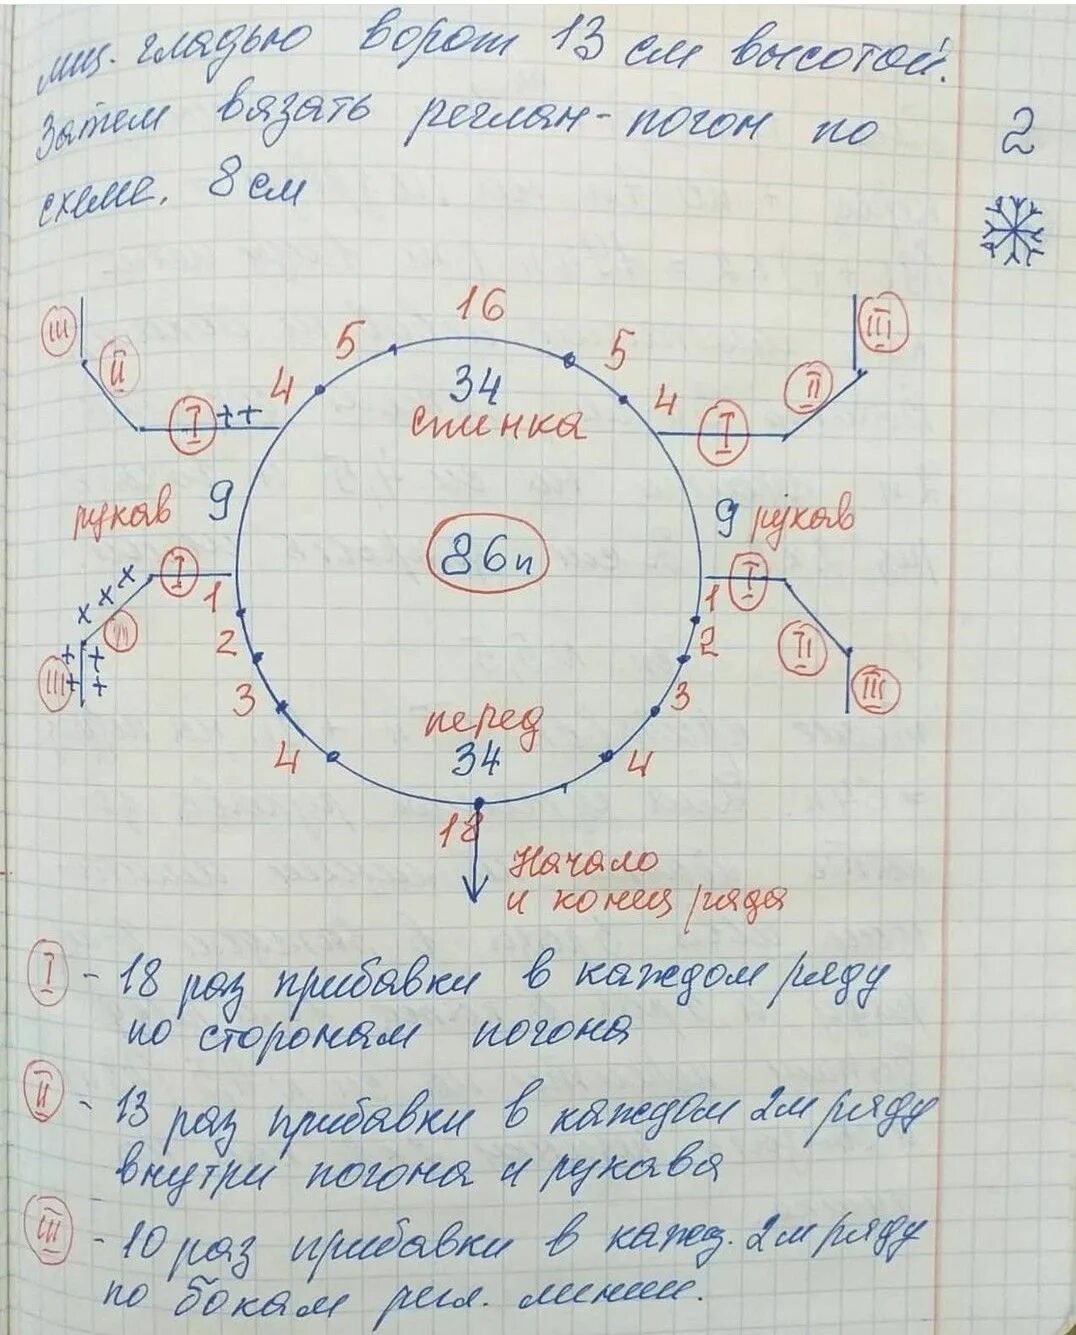 лиц. гладью ворот 13 см высотой.
Затем вязать реглан-погон по
схеме. 8 см
2
16
5
5
4
4
34
спинка
III
II
I
++
I
II
III
рукав
9
86п
9
рукав
I
x x x
I
1
1
2
2
3
3
4
4
III
II
III
перед
34
18
Начало
и конец ряда
I - 18 раз прибавки в каждом ряду
по сторонам погона
II - 13 раз прибавки в каждом 2м ряду
внутри погона и рукава
III - 10 раз прибавки в кажд. 2м ряду
по бокам регл. линии.